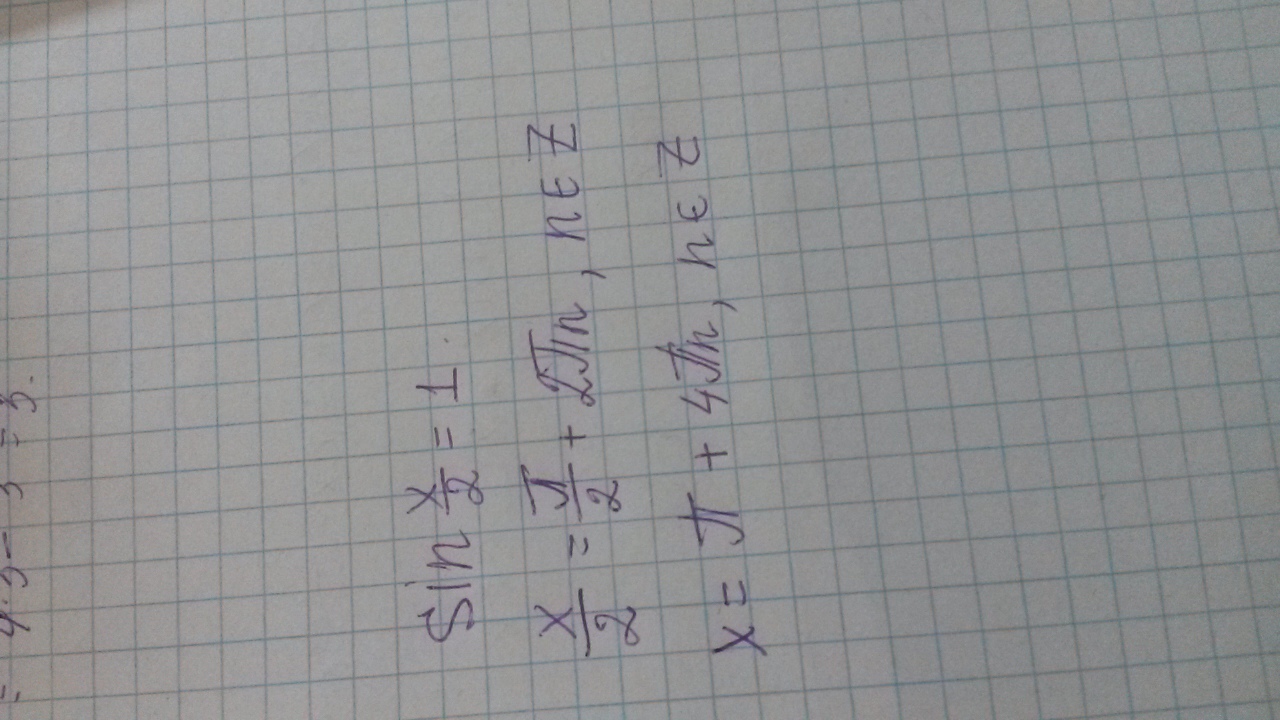 = 4·3 – 3 = 3.
sin x/2 = 1.
x/2 = π/2 + 2πn, n ∈ Z
x = π + 4πn, n ∈ Z